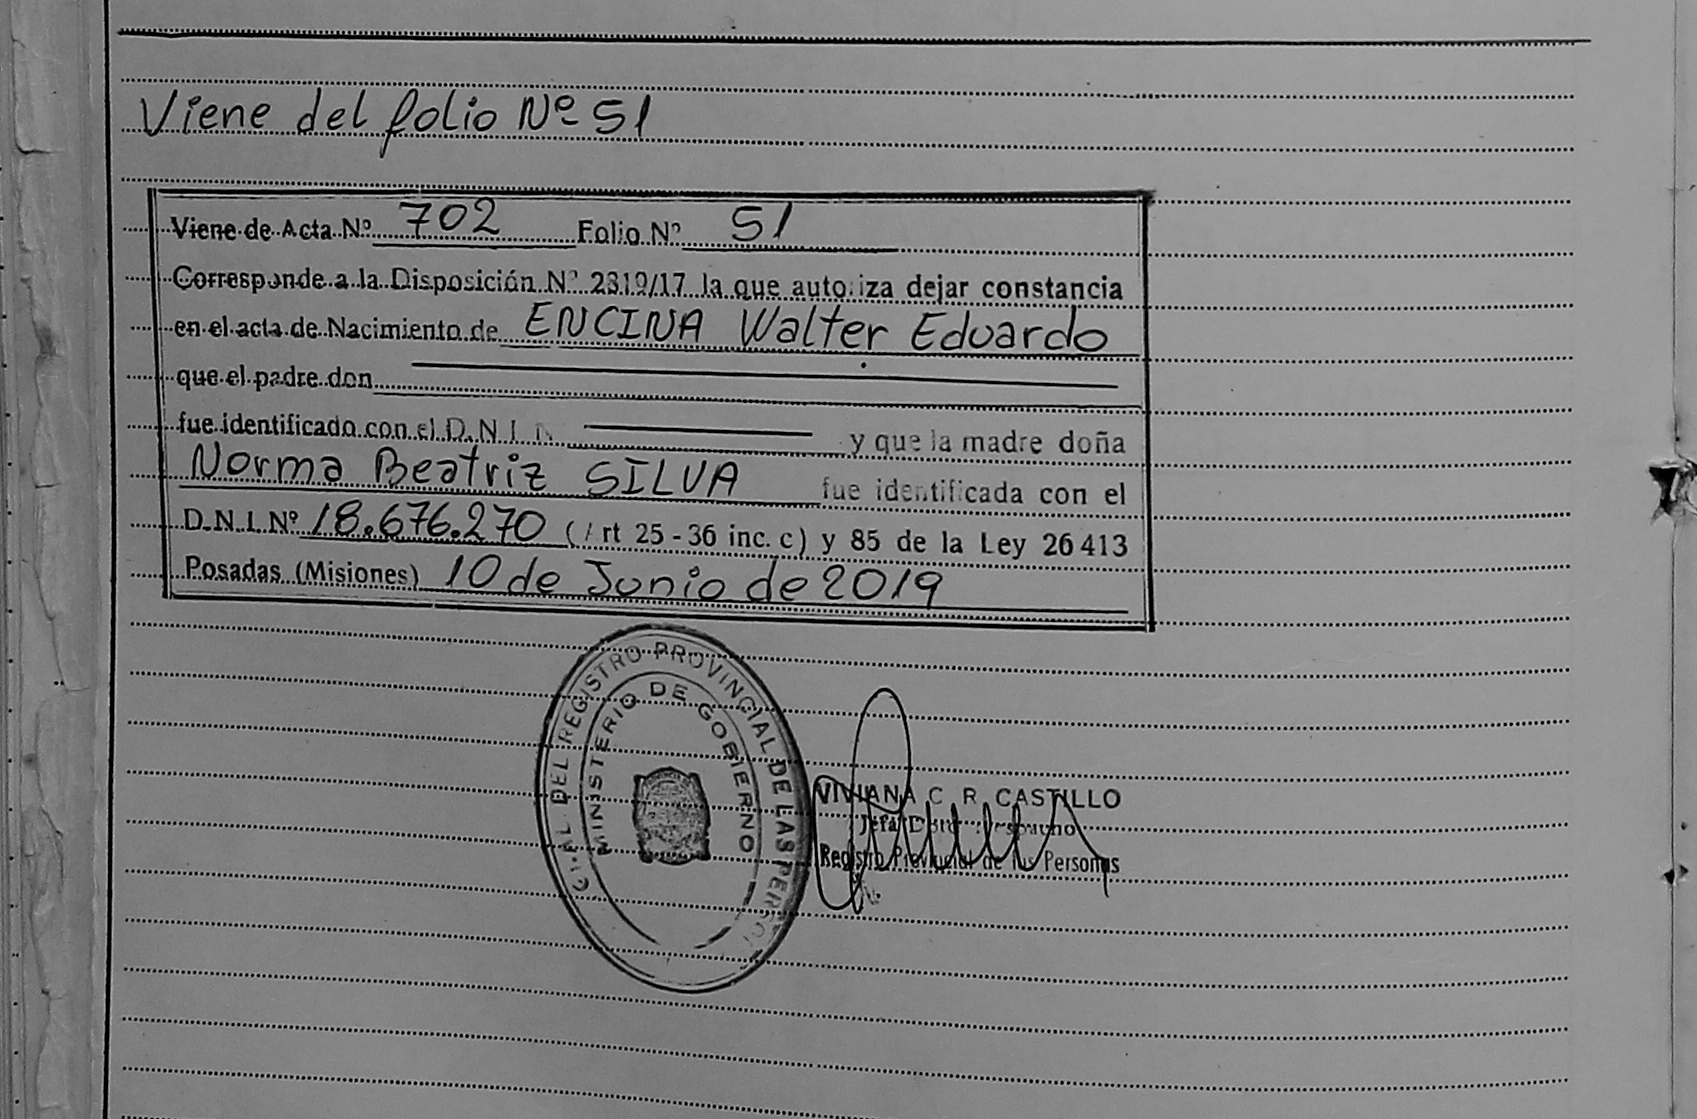 Viene del folio Nº 51
Viene de Acta Nº 702 Folio Nº 51
Corresponde a la Disposición Nº 2319/17 la que autoriza dejar constancia
en el acta de Nacimiento de ENCINA Walter Eduardo
que el padre don
fue identificado con el D.N.I. N y que la madre doña
Norma Beatriz SILVA fue identificada con el
D.N.I. Nº 18.676.270 (Art 25 - 36 inc. c) y 85 de la Ley 26413
Posadas (Misiones) 10 de Junio de 2019
DEL REGISTRO PROVINCIAL DE LAS PERSO
MINISTERIO DE GOBIERNO
VIVIANA C. R. CASTILLO
Jefa Dpto Despacho
Registro Provincial de las Personas